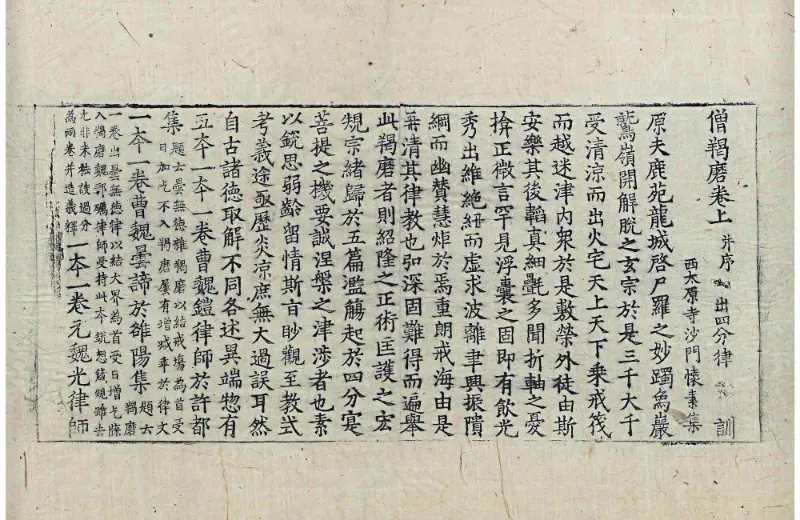 僧羯磨卷上 并序 出四分律 訓
西太原寺沙門懷素集
原夫鹿苑龍城啓尸羅之妙躅象巖
鷲嶺開解脫之玄宗於是三千大千
受清涼而出火宅天上天下乗戒筏
而越迷津內衆於是敷榮外徒由斯
安樂其後韜真細㲲多聞折軸之憂
揜正微言罕見浮囊之固即有飲光
秀出維絶紐而虛求波離聿興振隤
綱而幽賛慧炬於焉重朗戒海由是
再清其律教也弘深固難得而遍舉
此羯磨者則紹隆之正術匡護之宏
規宗緒歸於五篇濫觴起於四分寔
菩提之機要誠涅槃之津涉者也素
以銳思弱齡留情斯旨眇觀至教式
考義途亟歷炎涼庶無大過誤耳然
自古諸徳取解不同各述異端惣有
五本一本一卷曹魏鎧律師於許都
集 題云曇無德雜羯磨以結戒塲為首受
日加乞不入羯磨屢有増減乖於律文
一本一卷曹魏曇諦於雒陽集 題云羯磨
一卷出曇無德律以結大界為首受日増乞牒
入羯磨魏郭礪律師受持此本
尤非未檢該過分
為兩卷并造義釋 一本一卷元魏光律師